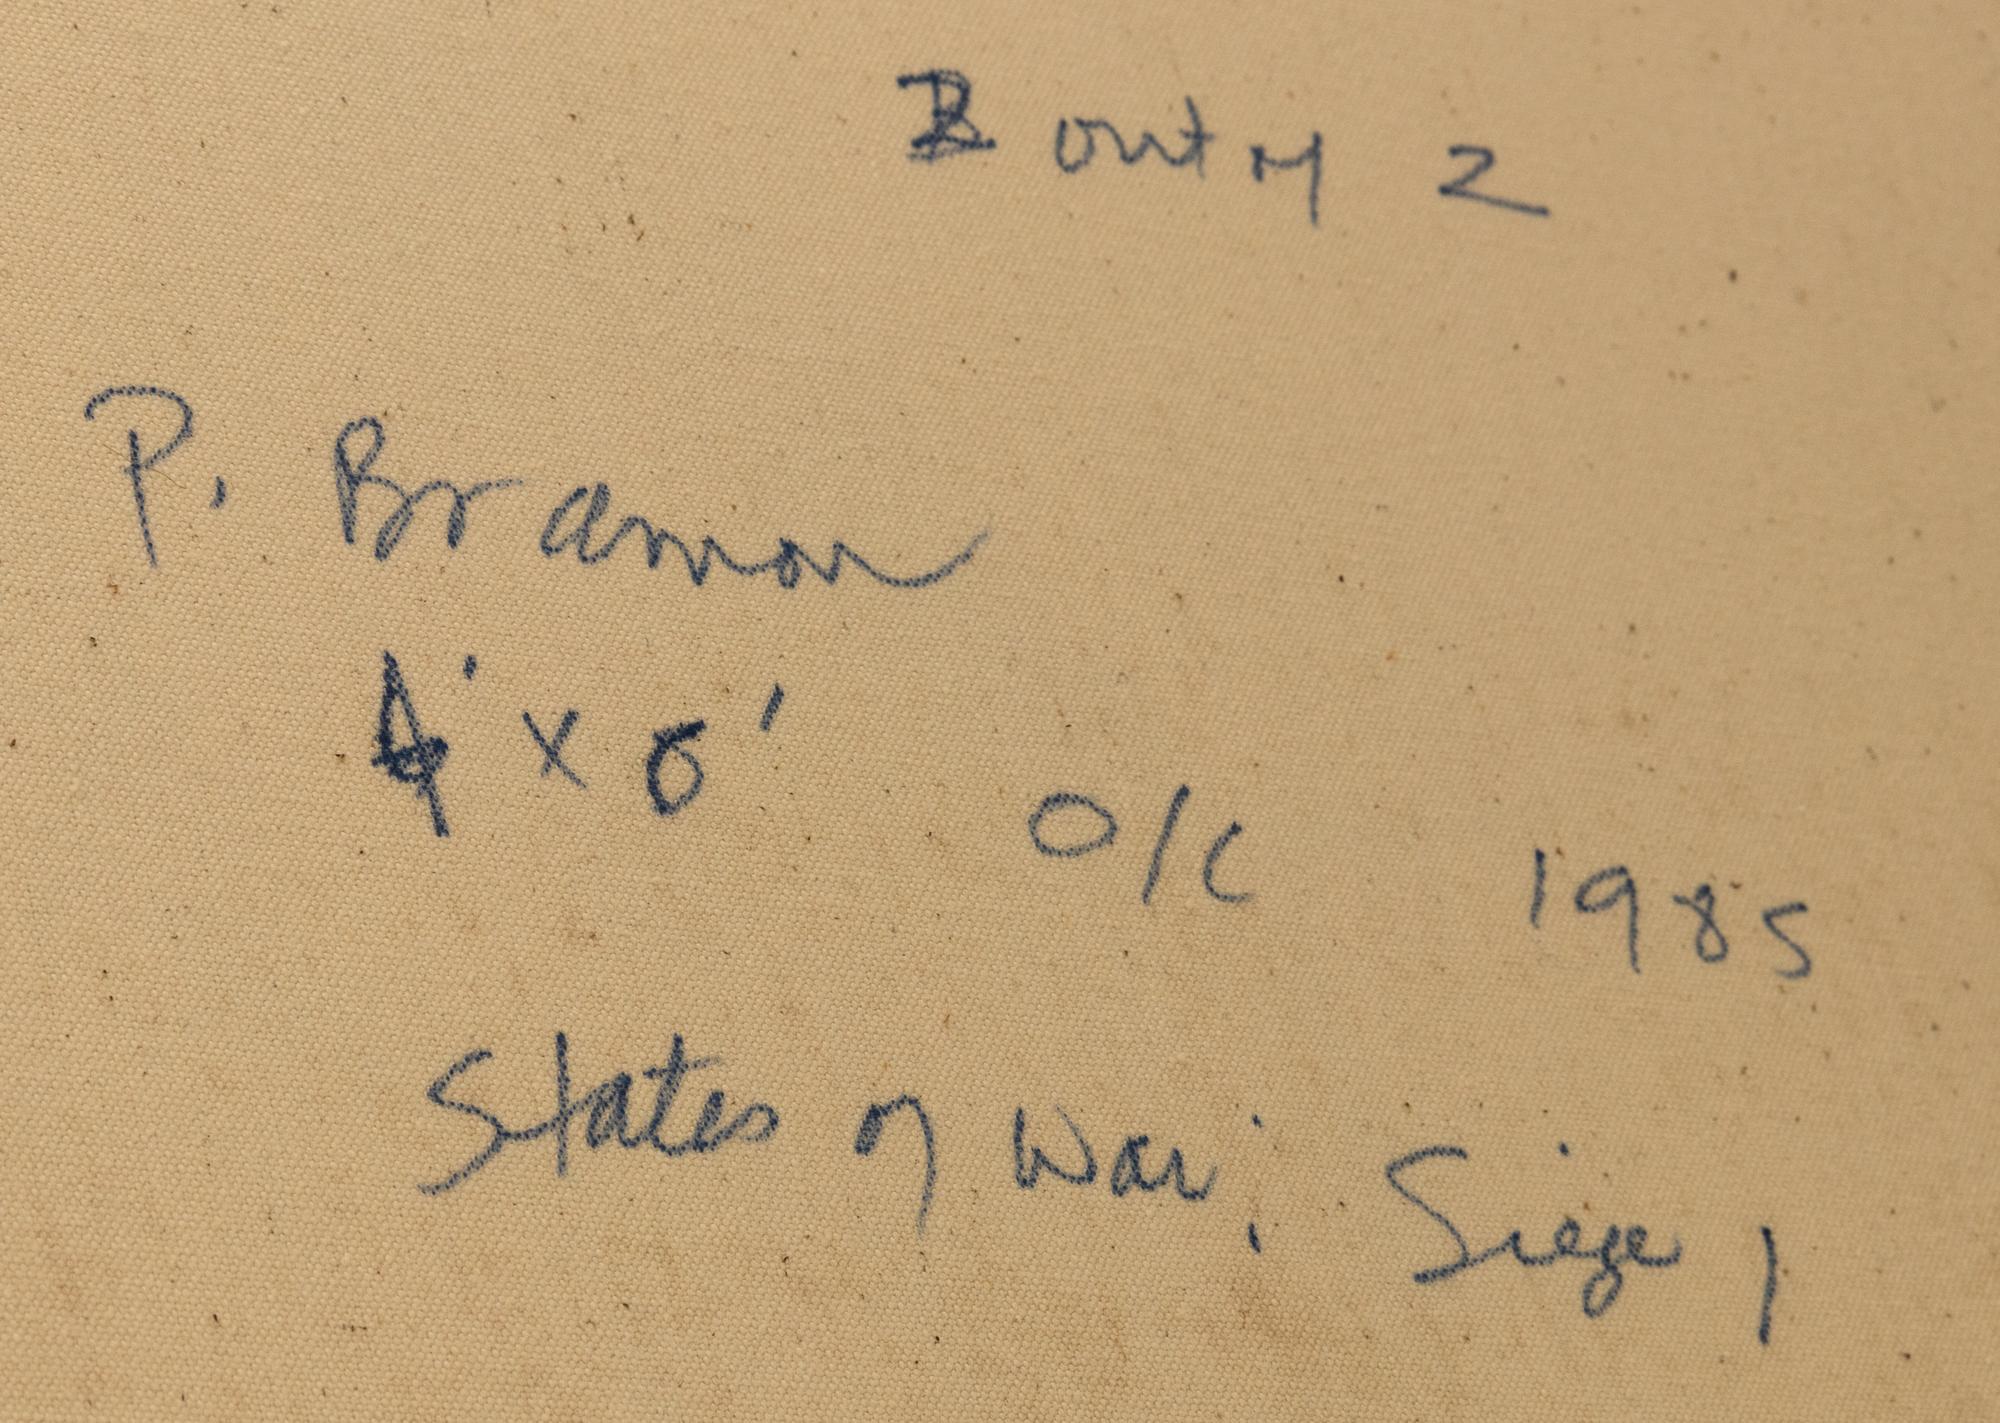 2 out of 2
P. Bramon
4' x 6' O/C 1985
States of War; Siege 1